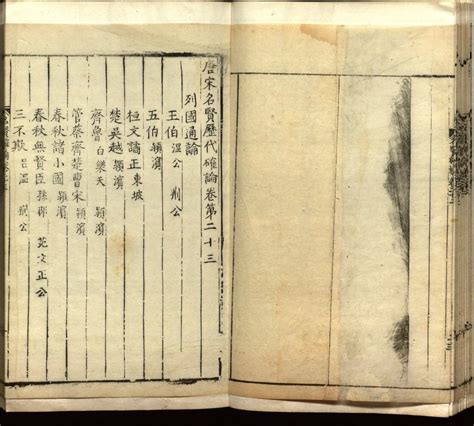 唐宋名賢歷代確論卷第二十三
列國通論
王伯 溫公 荊公
五伯 潁濱
桓文譎正 東坡
楚吳越 潁濱
齊魯 白樂天 潁濱
管蔡齊楚曹宋 潁濱
春秋諸小國 潁濱
春秋無賢臣 孫郃 范文正公
三不欺 溫公 荊公